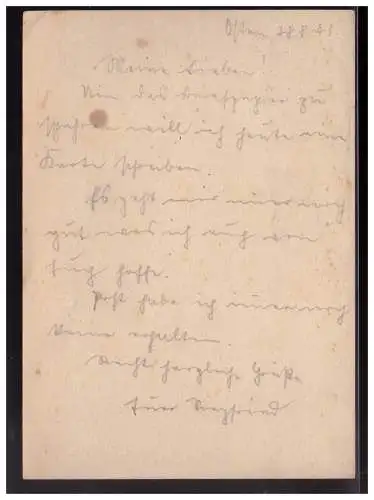 Osten 28.8.41
Meine Lieben!
Um das Briefpapier zu
spahren will ich heute nur
Karte schreiben.
Es geht mir immer noch
gut was ich auch von
Euch hoffe.
Post habe ich immer noch
keine erhalten.
Recht herzliche Grüße
Euer Siegfried